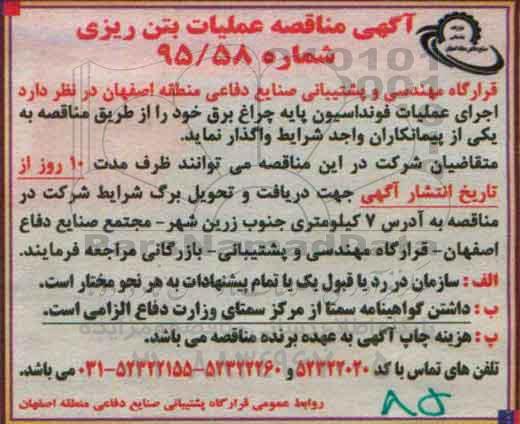 آگهی مناقصه عملیات بتن ریزی
شماره ۹۵/۵۸
قرارگاه مهندسی و پشتیبانی صنایع دفاعی منطقه اصفهان در نظر دارد
اجرای عملیات فونداسیون پایه چراغ برق خود را از طریق مناقصه به
یکی از پیمانکاران واجد شرایط واگذار نماید.
متقاضیان شرکت در این مناقصه می توانند ظرف مدت ۱۰ روز از
تاریخ انتشار آگهی جهت دریافت و تحویل برگ شرایط شرکت در
مناقصه به آدرس ۷ کیلومتری جنوب زرین شهر- مجتمع صنایع دفاع
اصفهان- قرارگاه مهندسی و پشتیبانی- بازرگانی مراجعه فرمایند.
الف : سازمان در رد یا قبول یک یا تمام پیشنهادات به هر نحو مختار است.
ب : داشتن گواهینامه سمتا از مرکز سمتای وزارت دفاع الزامی است.
پ : هزینه چاپ آگهی به عهده برنده مناقصه می باشد.
تلفن های تماس با کد ۵۲۳۲۲۰۲۰ و ۵۲۳۲۲۲۶۰-۵۲۳۲۲۱۵۵-۰۳۱ می باشد.
روابط عمومی قرارگاه پشتیبانی صنایع دفاعی منطقه اصفهان